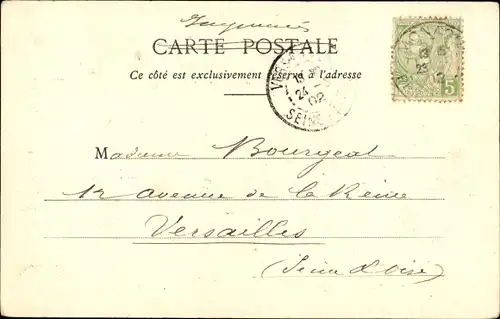 Imprimés
CARTE POSTALE
Ce côté est exclusivement réservé à l'adresse
13
24
02
SEINE
13
23
5
Madame Bourgeat
12 avenue de la Reine
Versailles
(Seine & Oise)